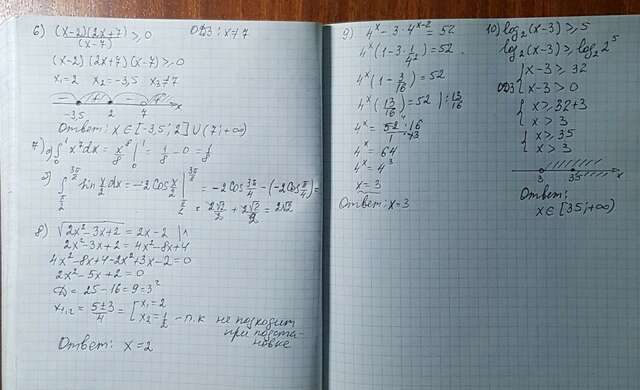 6) (x-2)(2x+7)/(x-7) ≥ 0   ОДЗ: x≠7
(x-2)(2x+7)(x-7) ≥ 0
x₁=2   x₂=-3,5   x₃≠7
- + - +
-3,5   2   7   x
Ответ: x ∈ [-3,5; 2] ∪ (7; +∞)
7) а) ∫₀¹ x⁷dx = x⁸/8 |₀¹ = 1/8 - 0 = 1/8
б) ∫_{π/2}^{3π/2} sin x/2 dx = -2Cos x/2 |_{π/2}^{3π/2} = -2Cos 3π/4 - (-2Cos π/4) =
= 2√2/2 + 2√2/2 = 2√2
8) √(2x²-3x+2) = 2x-2 |^
2x²-3x+2 = 4x²-8x+4
4x²-8x+4-2x²+3x-2=0
2x²-5x+2=0
D=25-16=9=3²
x₁,₂ = (5±3)/4 = [x₁=2
x₂=1/2 - т.к не подходит
при подста-
новке
Ответ: x=2
9) 4ˣ-3·4ˣ⁻²=52
4ˣ(1-3·1/4²)=52.
4ˣ(1-3/16)=52
4ˣ(13/16)=52 |:13/16
4ˣ=52·16/1·13
4ˣ=64
4ˣ=4³
x=3
Ответ: x=3
10) log₂(x-3) ≥ 5
log₂(x-3) ≥ log₂2⁵
{x-3 ≥ 32
ОДЗ {x-3>0
{x ≥ 32+3
x>3
{x ≥ 35
x>3
3   35   x
Ответ:
x ∈ [35; +∞)